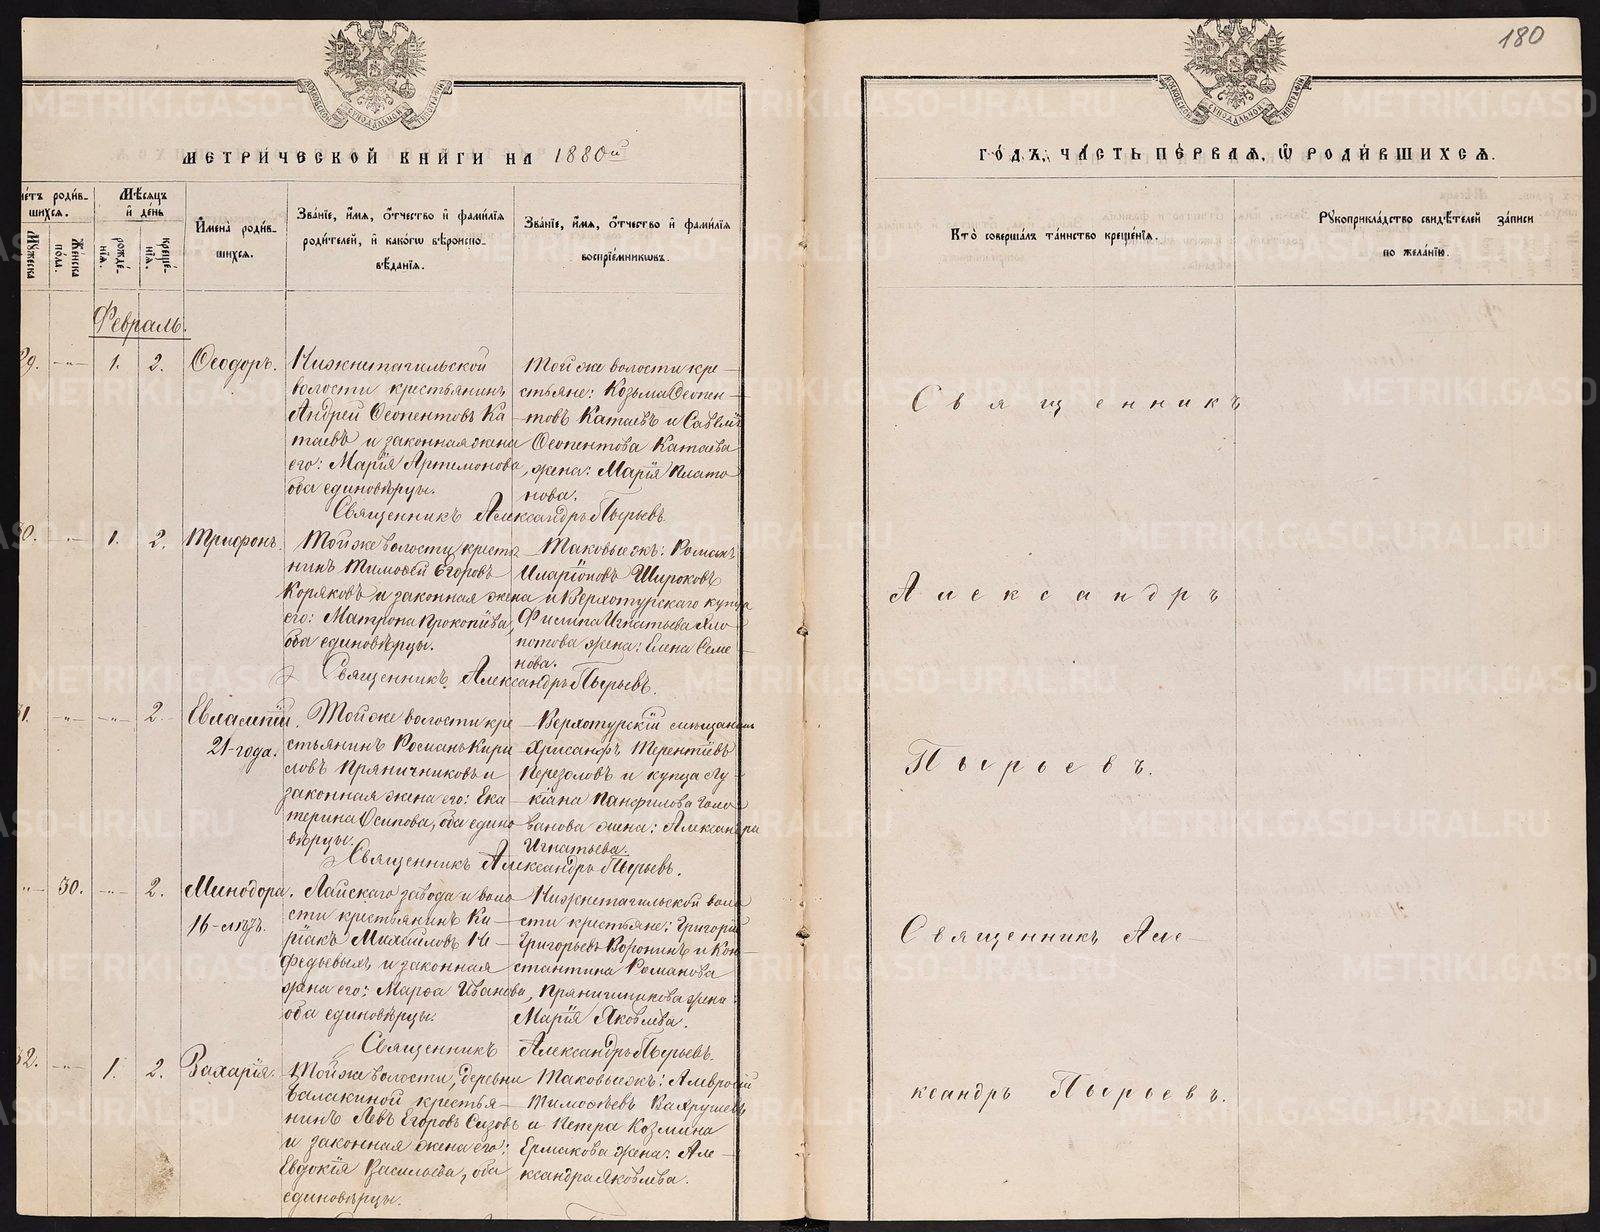 180
МЕТРИ́ЧЕСКОЙ КНИ́ГИ НА 1880й
ГО́ДЪ, ЧА́СТЬ ПЕ́РВАЯ, Ѽ РОДИ́ВШИХСЯ.
роди́в-
шихся.
Му́жеска
Же́нска
по́ла.
Мѣ́сяцъ
и҆ де́нь
рожде́-
нїѧ.
креще́-
нїѧ.
И҆мена̀ роди́в-
шихсѧ.
Зва́нїе, и҆́мѧ, ѻ҆́тчество и҆ фами́лїѧ
роди́телей, и҆ како́гѡ вѣроиспо-
вѣ́данїѧ.
Зва́нїе, и҆́мѧ, ѻ҆́тчество и҆ фами́лїѧ
воспрїе́мникѡвъ.
Кто̀ соверша́лъ та́инство креще́нїѧ.
Рꙋкоприкла́дство свидѣ́телей за́писи
по жела́нїю.
Февраль.
29. -„- 1. 2. Ѳеодоръ.
Нижнетагильской
волости крестьянинъ
Андрей Ѳеопентовъ Ка
таевъ и законная жена
его: Марїя Артемонова,
оба единовѣрцы.
Той же волости кре-
стьяне: Козьма Ѳеопен-
товъ Катаевъ и Савелїя
Ѳеопентова Катаева
жена: Марїя Плато
нова.
Священникъ Александръ Пырьевъ.
30. -„- 1. 2. Трифонъ.
Той же волости крестья
нинъ Тимоѳей Егоровъ
Коряковъ и законная жена
его: Матрона Прокопїева,
оба единовѣрцы.
Таковые жъ: Романъ
Иларїоновъ Широковъ
и Верхотурскаго купца
Филипа Игнатьева Хло
потова жена: Елена Семе
нова.
Священникъ Александръ Пырьевъ.
31. -„- -„- 2. Евлампїй.
21-года.
Той же волости кре
стьянинъ Романъ Кири
ловъ Пряничниковъ и
законная жена его: Ека
терина Осипова, оба едино
вѣрцы.
Верхотурскїй мѣщанин
Хрисанфъ Терентїевъ
Перезоловъ и купца Лу-
кїана Панфилова Голо
ванова жена: Александра
Игнатьева.
Священникъ Александръ Пырьевъ.
-„- 30. -„- 2. Минодора.
16-лѣтъ.
Лайскаго завода и воло
сти крестьянинъ Ки-
рїакъ Михайловъ Не-
федьевыхъ и законная
жена его: Марѳа Иванова,
оба единовѣрцы.
Нижнетагильской воло
сти крестьяне: Григорїй
Григорьевъ Воронинъ и Кон-
стантина Романова
Пряничникова жена:
Марїя Яковлева.
Священникъ Александръ Пырьевъ.
32. -„- 1. 2. Захарїя.
Той же волости, деревни
Балакиной крестья-
нинъ Левъ Егоровъ Сизовъ
и законная жена его:
Евдокїя Васильева, оба
единовѣрцы.
Таковые жъ: Амвросїй
Тимоѳѣевъ Вахрушевъ
и Петра Козмина
Ермакова жена: Але-
ксандра Яковлева.
Священникъ
Александръ
Пырьевъ.
Священникъ Але-
ксандръ Пырьевъ.
METRIKI.GASO-URAL.RU